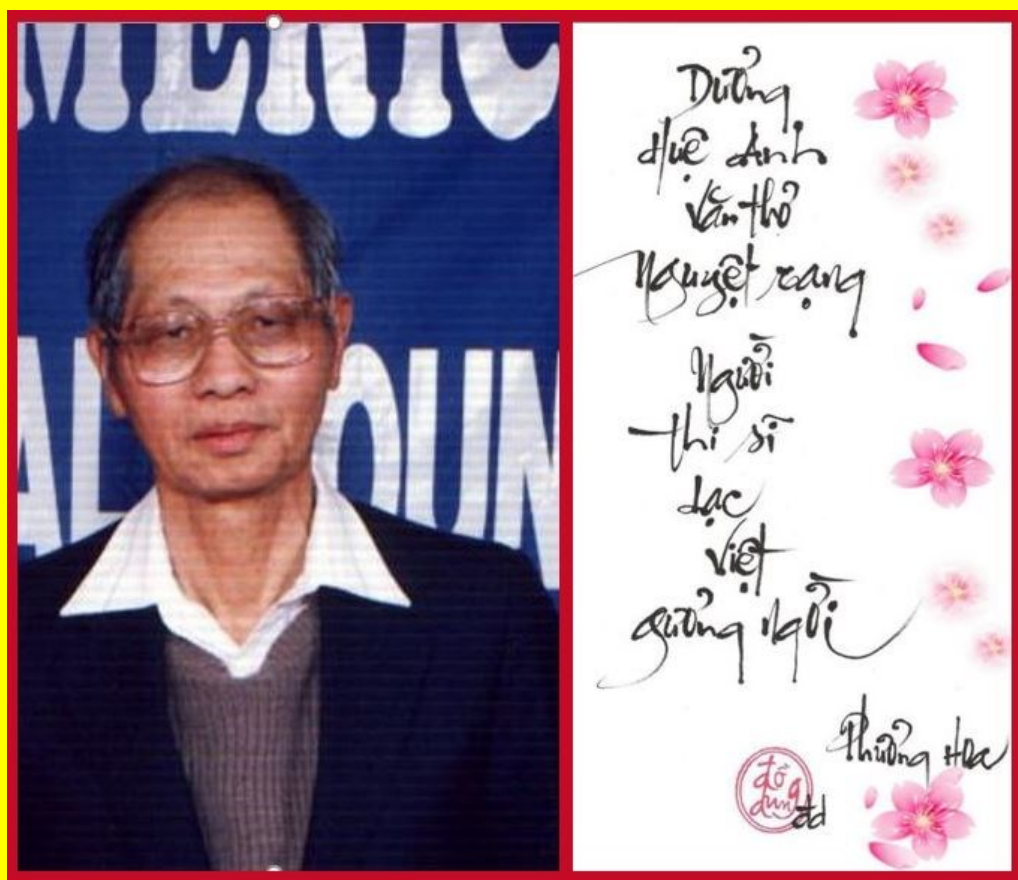 MERIC
AL OUN
Dương
Huệ Anh
Văn thơ
Nguyệt rạng
Người
thi sĩ
Lạc
Việt
gương ngời
Phương Hoa
đỗ
dung
đd